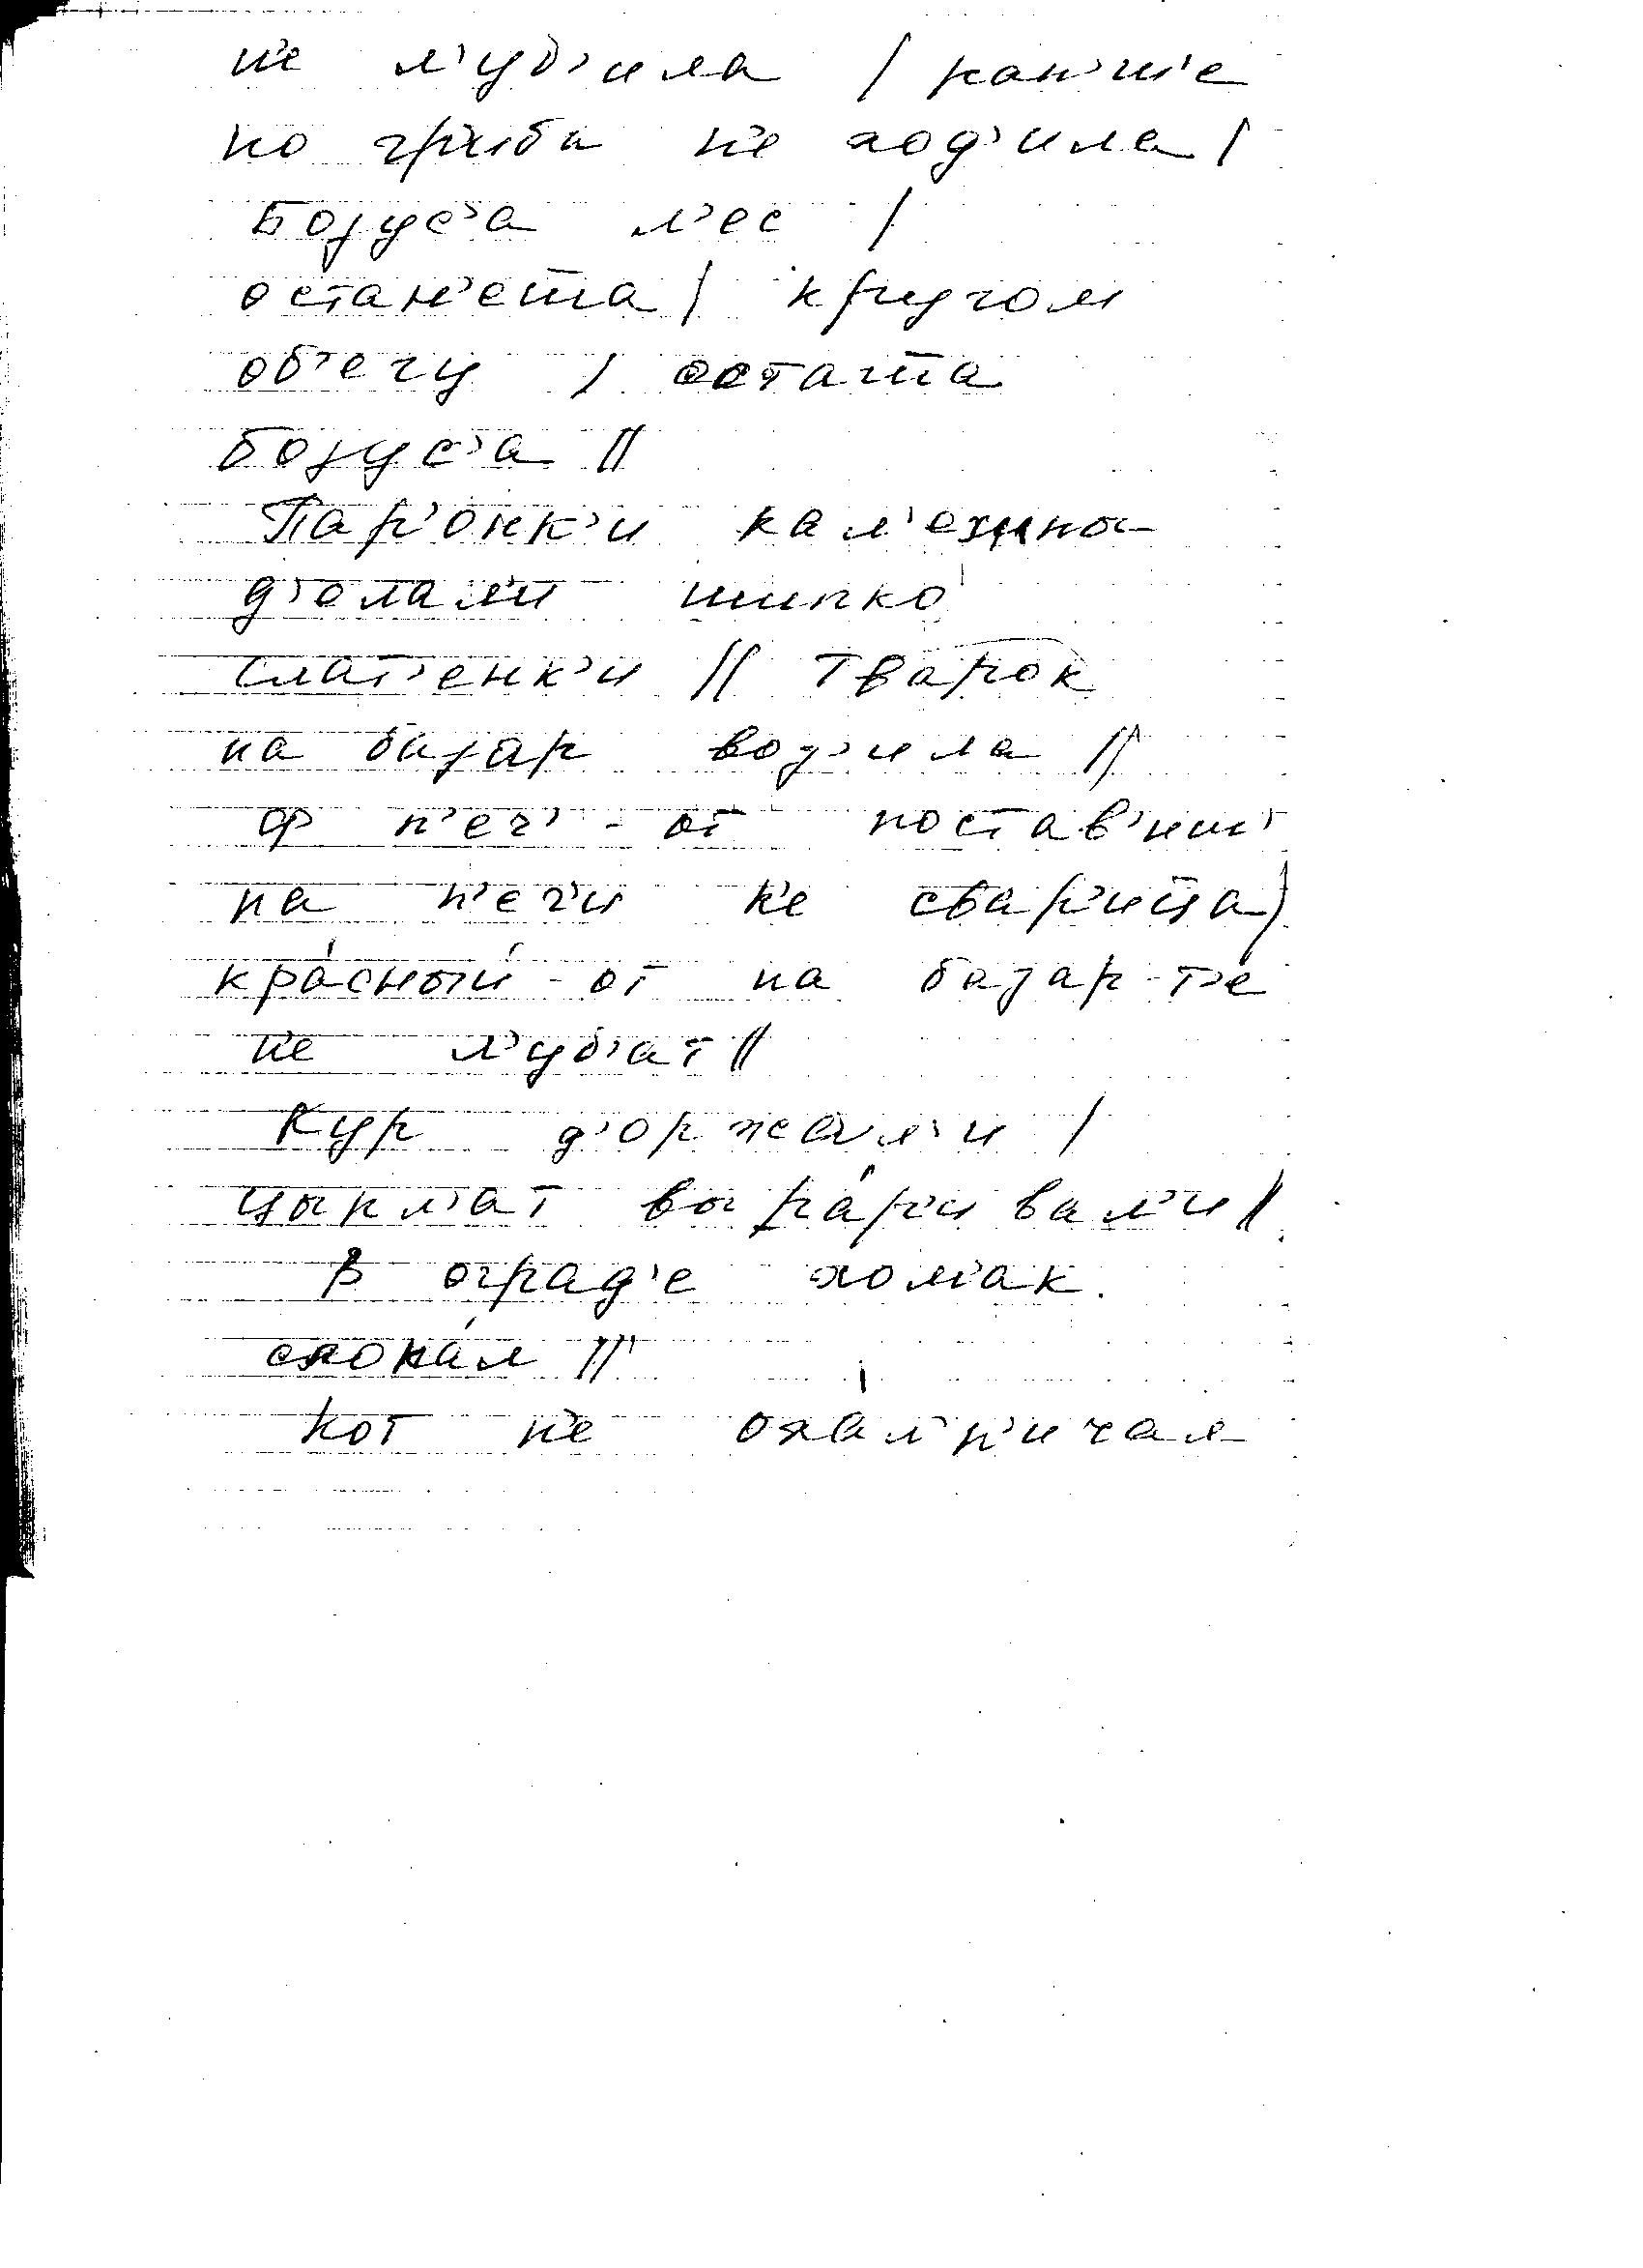 н'е л'уб'ила / ран'ше
по гр'иба н'е ход'ила /
Бојус'а л'ес /
остан'еша / кругом
об'егу /
бојус'а //
Пар'онк'и кал'
д'елал'и шыпко
слат'енк'и // Тварок
на базар вод'ила //
ф п'еч'-от постав'иш'
на п'еч'и н'е свар'ица /
кра́сный-от на базар-т'е
н'е л'уб'ат //
Кур д'оржал'и /
цыпл'ат выпа́р'ивал'и //
В оград'е хом'ак
Кот н'е